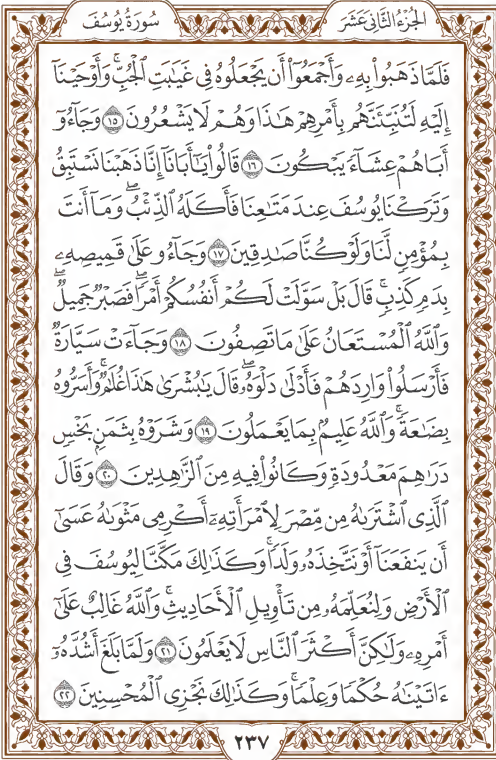 الجُزْءُ الثَّانِي عَشَرَ
سُورَةُ يُوسُفَ
فَلَمَّا ذَهَبُوا۟ بِهِۦ وَأَجْمَعُوٓا۟ أَن يَجْعَلُوهُ فِى غَيَٰبَتِ ٱلْجُبِّ ۚ وَأَوْحَيْنَآ
إِلَيْهِ لَتُنَبِّئَنَّهُم بِأَمْرِهِمْ هَٰذَا وَهُمْ لَا يَشْعُرُونَ ١٥ وَجَآءُوٓ
أَبَاهُمْ عِشَآءً يَبْكُونَ ١٦ قَالُوا۟ يَٰٓأَبَانَآ إِنَّا ذَهَبْنَا نَسْتَبِقُ
وَتَرَكْنَا يُوسُفَ عِندَ مَتَٰعِنَا فَأَكَلَهُ ٱلذِّئْبُ ۖ وَمَآ أَنتَ
بِمُؤْمِنٍ لَّنَا وَلَوْ كُنَّا صَٰدِقِينَ ١٧ وَجَآءُو عَلَىٰ قَمِيصِهِۦ
بِدَمٍ كَذِبٍ ۚ قَالَ بَلْ سَوَّلَتْ لَكُمْ أَنفُسُكُمْ أَمْرًا ۖ فَصَبْرٌ جَمِيلٌ ۖ
وَٱللَّهُ ٱلْمُسْتَعَانُ عَلَىٰ مَا تَصِفُونَ ١٨ وَجَآءَتْ سَيَّارَةٌ
فَأَرْسَلُوا۟ وَارِدَهُمْ فَأَدْلَىٰ دَلْوَهُۥ ۖ قَالَ يَٰبُشْرَىٰ هَٰذَا غُلَٰمٌ ۚ وَأَسَرُّوهُ
بِضَٰعَةً ۚ وَٱللَّهُ عَلِيمٌۢ بِمَا يَعْمَلُونَ ١٩ وَشَرَوْهُ بِثَمَنٍۭ بَخْسٍ
دَرَٰهِمَ مَعْدُودَةٍ وَكَانُوا۟ فِيهِ مِنَ ٱلزَّٰهِدِينَ ٢٠ وَقَالَ
ٱلَّذِى ٱشْتَرَىٰهُ مِن مِّصْرَ لِٱمْرَأَتِهِۦٓ أَكْرِمِى مَثْوَىٰهُ عَسَىٰٓ
أَن يَنفَعَنَآ أَوْ نَتَّخِذَهُۥ وَلَدًا ۚ وَكَذَٰلِكَ مَكَّنَّا لِيُوسُفَ فِى
ٱلْأَرْضِ وَلِنُعَلِّمَهُۥ مِن تَأْوِيلِ ٱلْأَحَادِيثِ ۚ وَٱللَّهُ غَالِبٌ عَلَىٰٓ
أَمْرِهِۦ وَلَٰكِنَّ أَكْثَرَ ٱلنَّاسِ لَا يَعْلَمُونَ ٢١ وَلَمَّا بَلَغَ أَشُدَّهُۥٓ
ءَاتَيْنَٰهُ حُكْمًا وَعِلْمًا ۚ وَكَذَٰلِكَ نَجْزِى ٱلْمُحْسِنِينَ ٢٢
٢٣٧